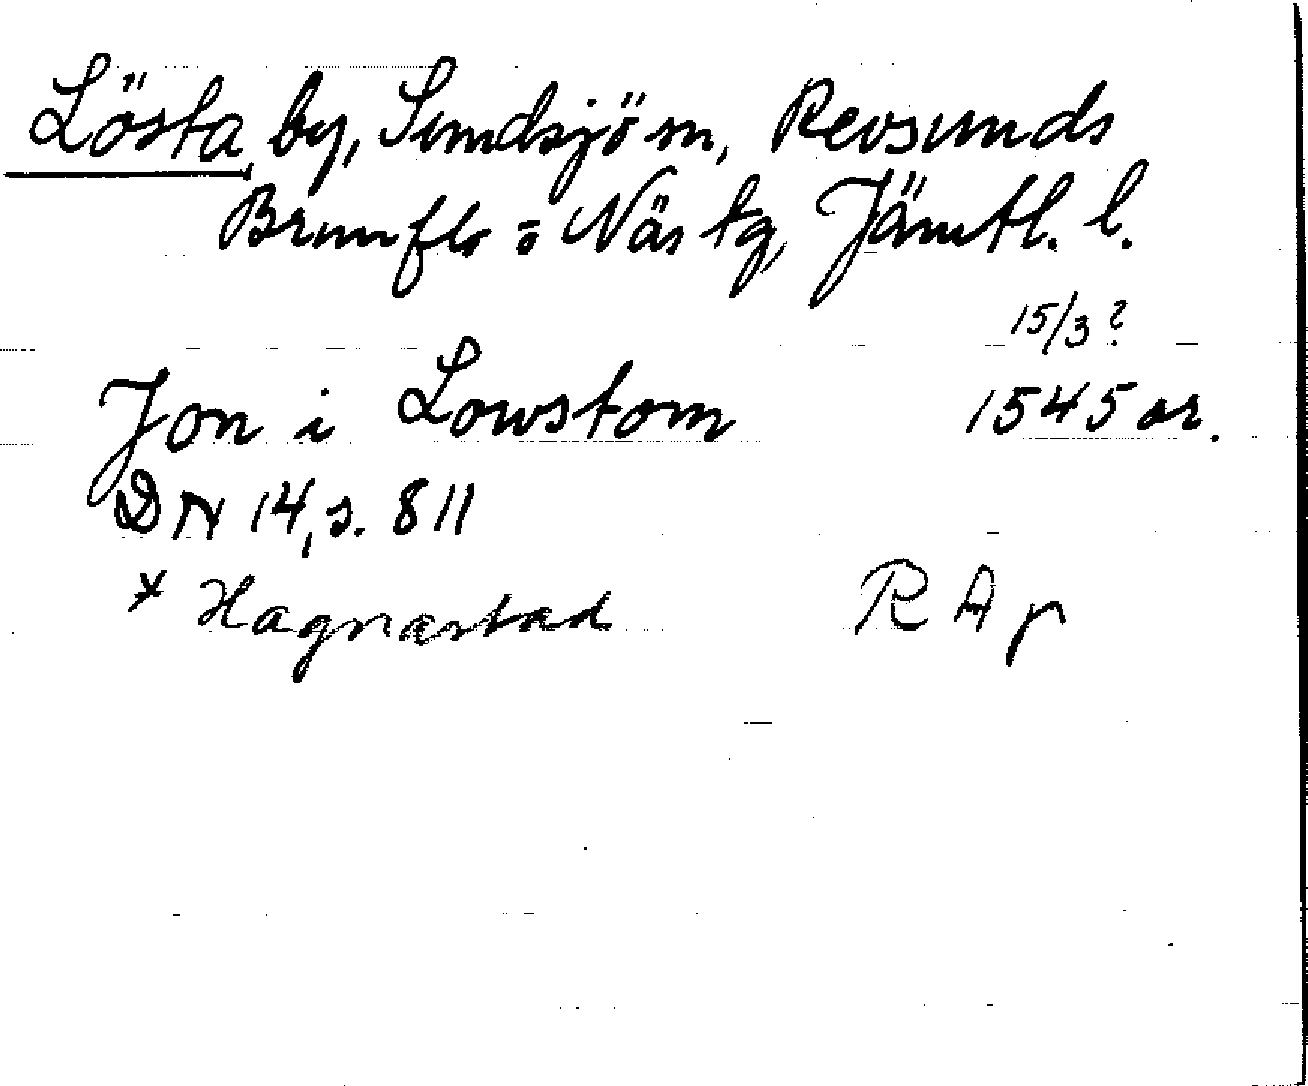 Lösta by, Sundsjö sn, Revsunds
Brunflo o Näs tg, Jämtl. l.
15/3 ?
Jon i Lowstom 1545 or.
DN 14, s. 811
* Hagnastad RAp